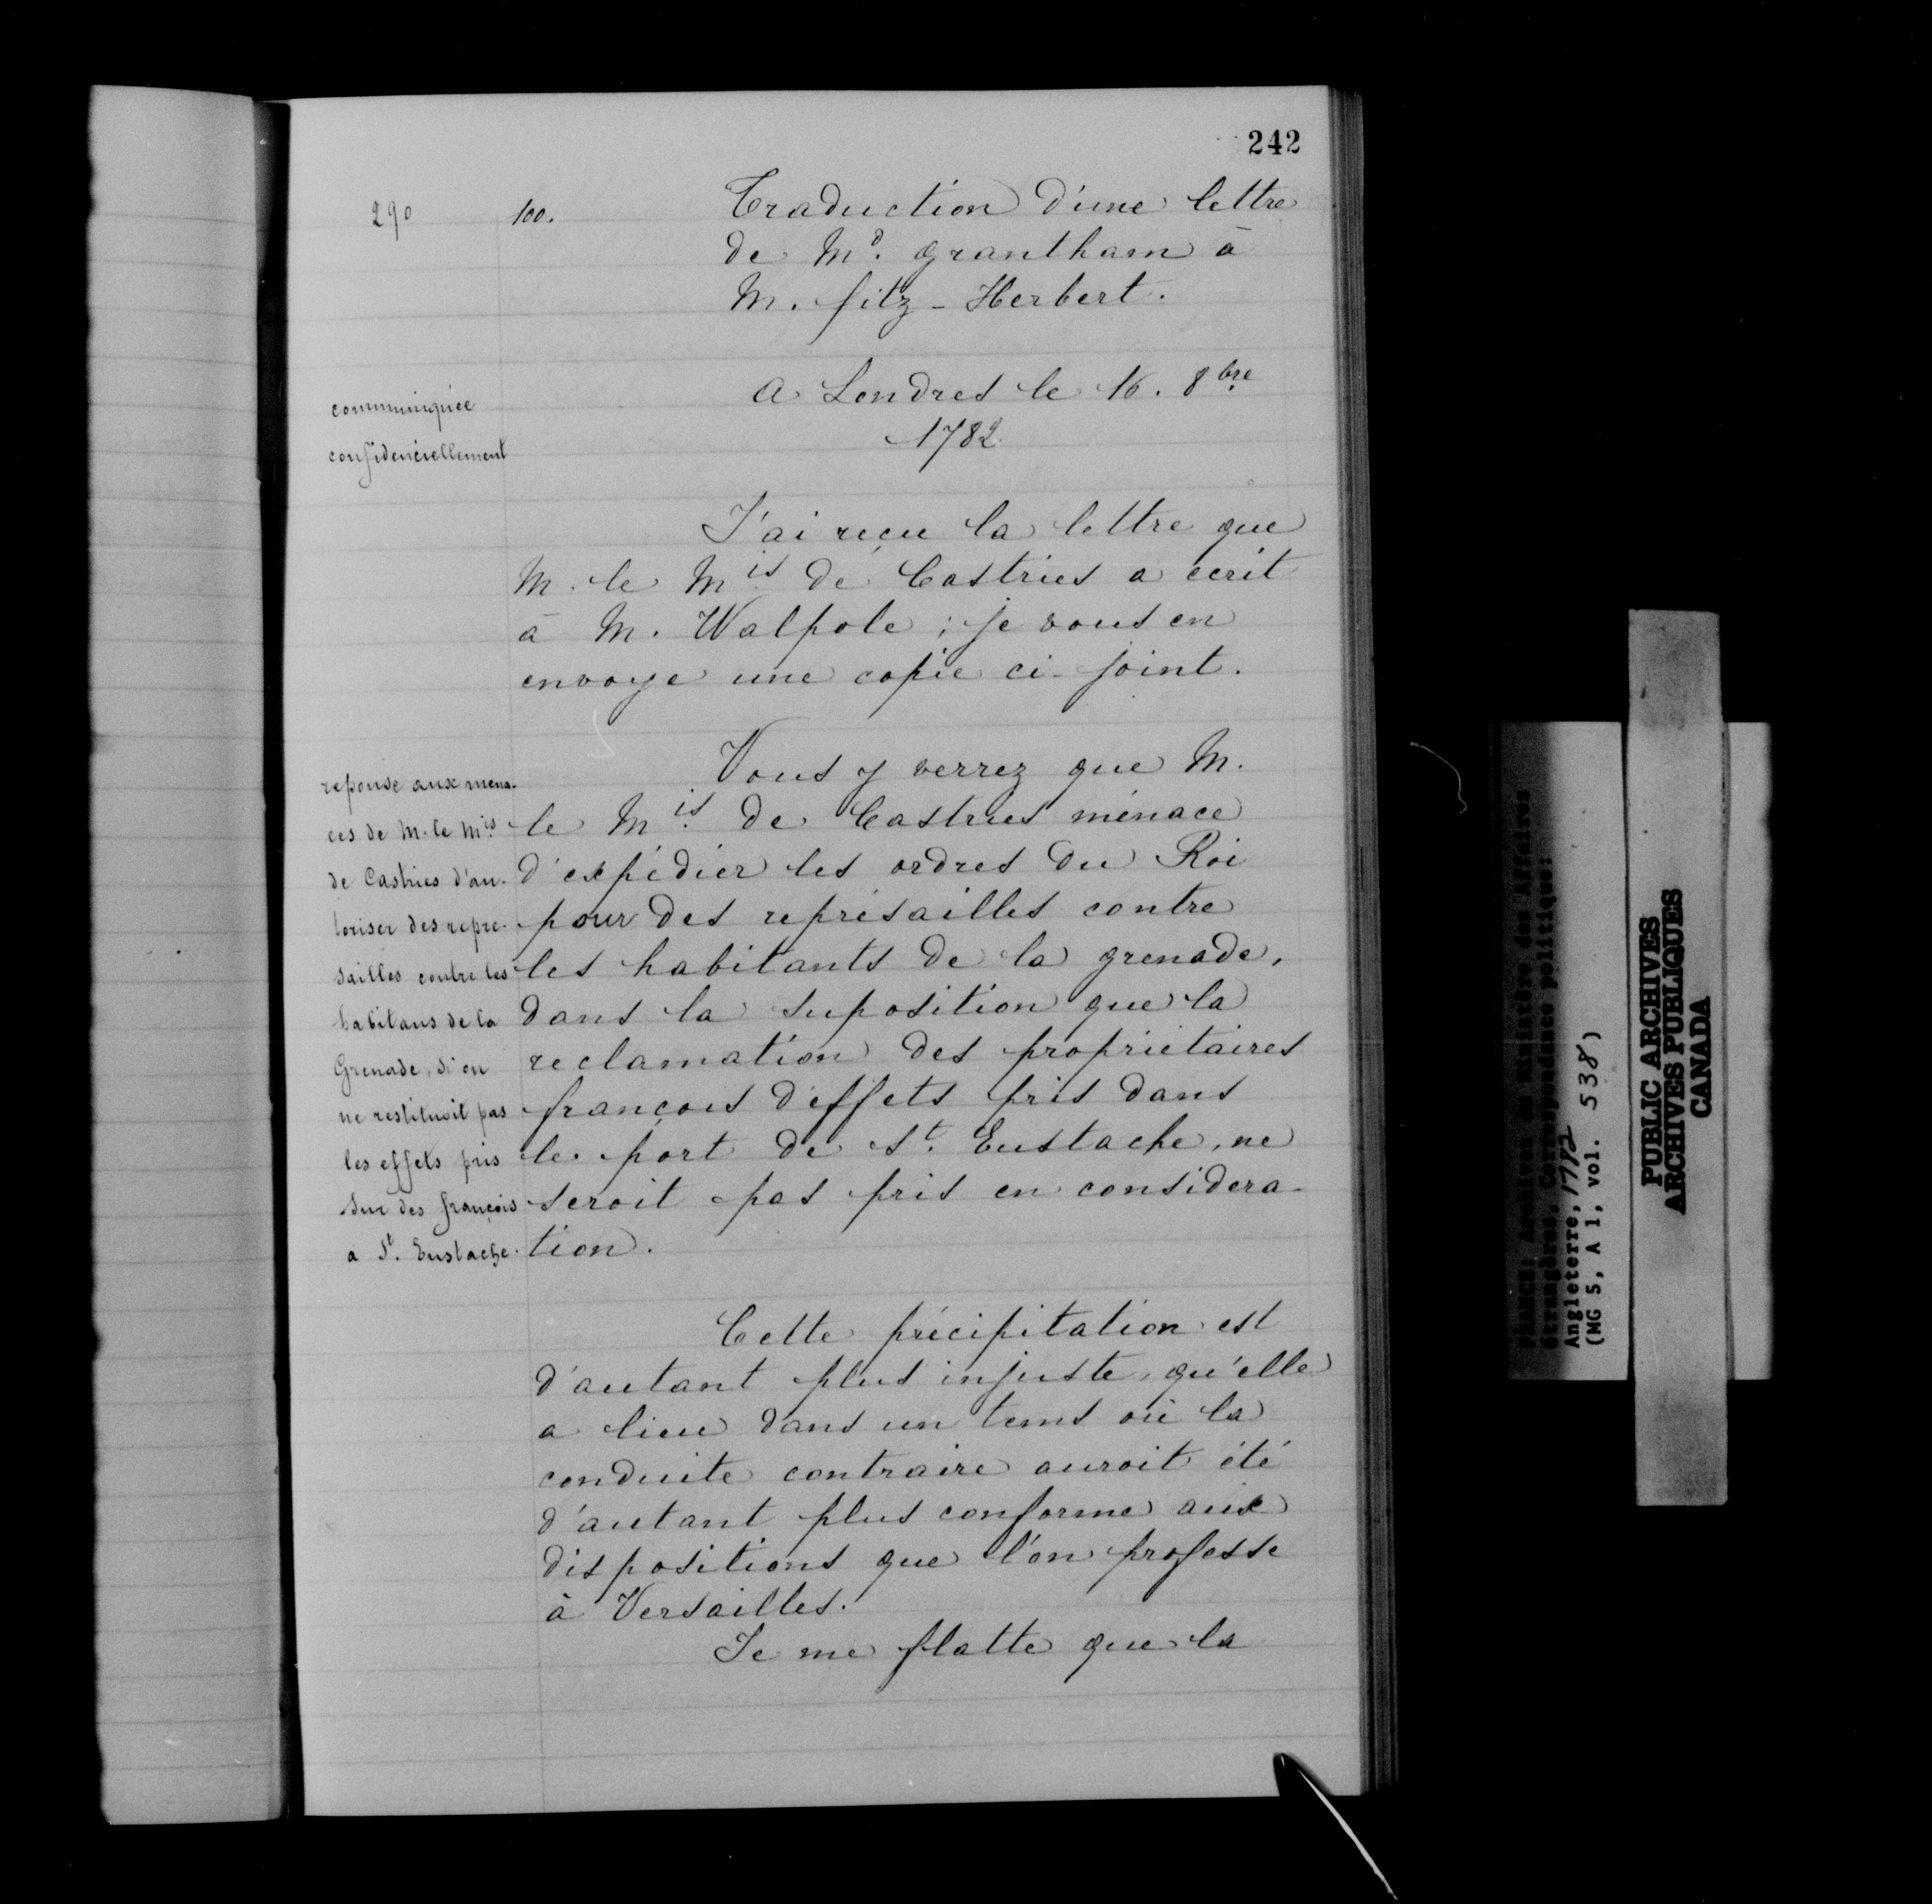 242
290
100.
Traduction d'une lettre
de Md. grantham à
M. fitz-Herbert.
communiquée
confidenciellement
A Londres le 16. 8bre
1782
J'ai reçu la lettre que
M. le Mis de Castries a écrit
à M. Walpole ; je vous en
envoye une copie ci-joint.
reponse aux mena-
ces de M. le Mis
de Castries d'au-
toriser des repre-
sailles contre les
habitans de la
Grenade, si on
ne restituoit pas
les effets pris
sur des françois
a St. Eustache.
Vous y verrez que M.
le Mis. de Castries ménace
d'expédier les ordres du Roi
pour des représailles contre
les habitants de la grenade,
dans la suposition que la
reclamation des propriétaires
françois d'effets pris dans
le port de St. Eustache, ne
seroit pas pris en considera-
tion.
Cette précipitation est
d'autant plus injuste, qu'elle
a lieu dans un tems où la
conduite contraire auroit été
d'autant plus conforme aux
dispositions que l'on professe
à Versailles.
Je me flatte que la
FRANCE: Archives du Ministère des Affaires
étrangères, Correspondance politique:
Angleterre, 1782
(MG 5, A 1, vol. 538)
PUBLIC ARCHIVES
ARCHIVES PUBLIQUES
CANADA